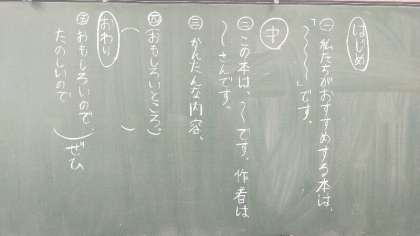 はじめ
㊀私たちがおすすめする本は、
「〜〜〜」です。
中
㊁この本は、〜です。作者は
〜さんです。
㊂かんたんな内容、
㊃(おもしろいところ、)
おわり
㊄おもしろいので、
たのしいので
ぜひ